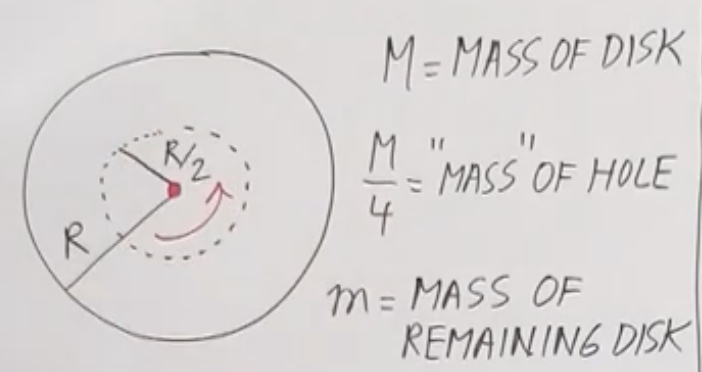 R/2
R
M = MASS OF DISK
M/4 = "MASS" OF HOLE
m = MASS OF
REMAINING DISK